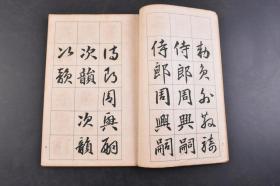 勅員外散騎
侍郎周興嗣
侍郎周興嗣
侍郎周興嗣
次韻 次韻
次韻